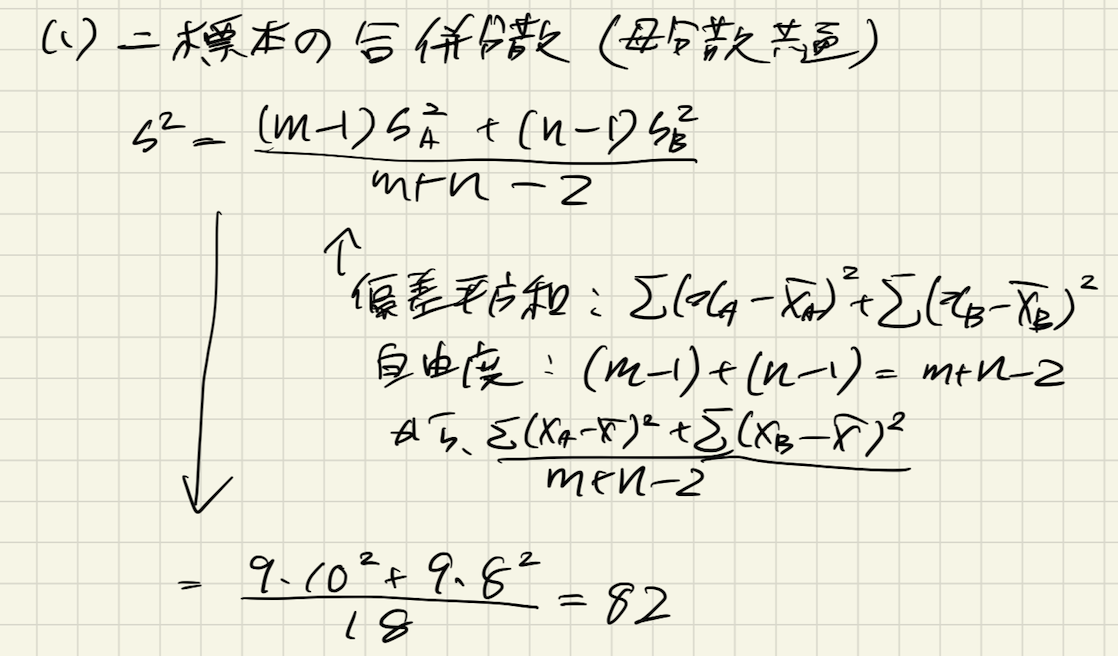 (1) 二標本の合併分散 (母分散共通)
s² = ((m-1)s_A² + (n-1)s_B²) / (m+n-2)
↑
偏差平方和 : Σ(x_A - x̄_A)² + Σ(x_B - x̄_B)²
自由度 : (m-1)+(n-1) = m+n-2
から、(Σ(x_A - x̄)² + Σ(x_B - x̄)²) / (m+n-2)
= (9・10² + 9・8²) / 18 = 82